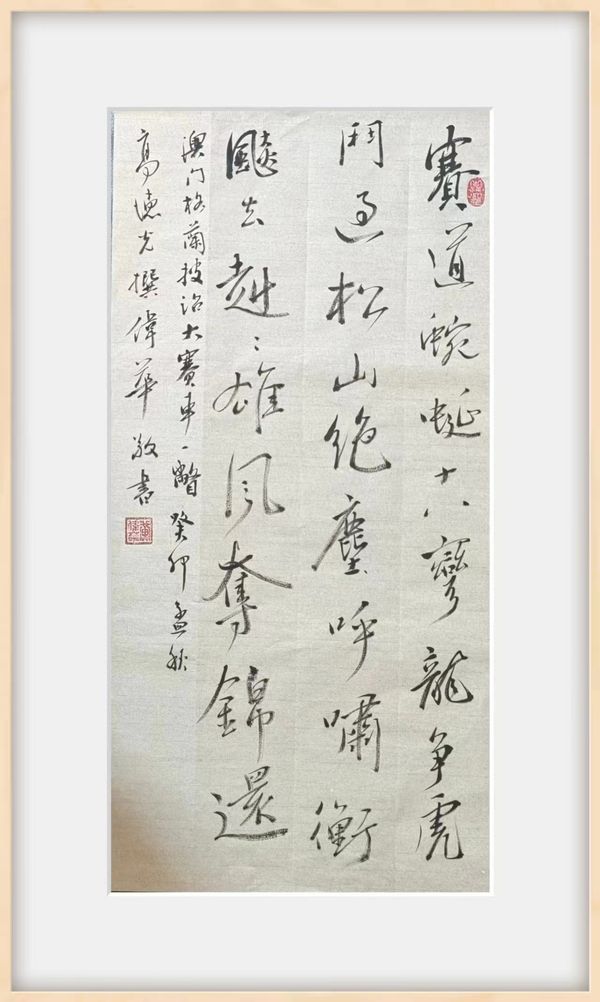 賽道蜿蜒十八彎龍爭虎
鬥過松山絕塵呼嘯衝
飈去赳〻雄風奪錦還
澳门格蘭披治大賽車一瞥癸卯孟秋
高德光撰偉華敬書